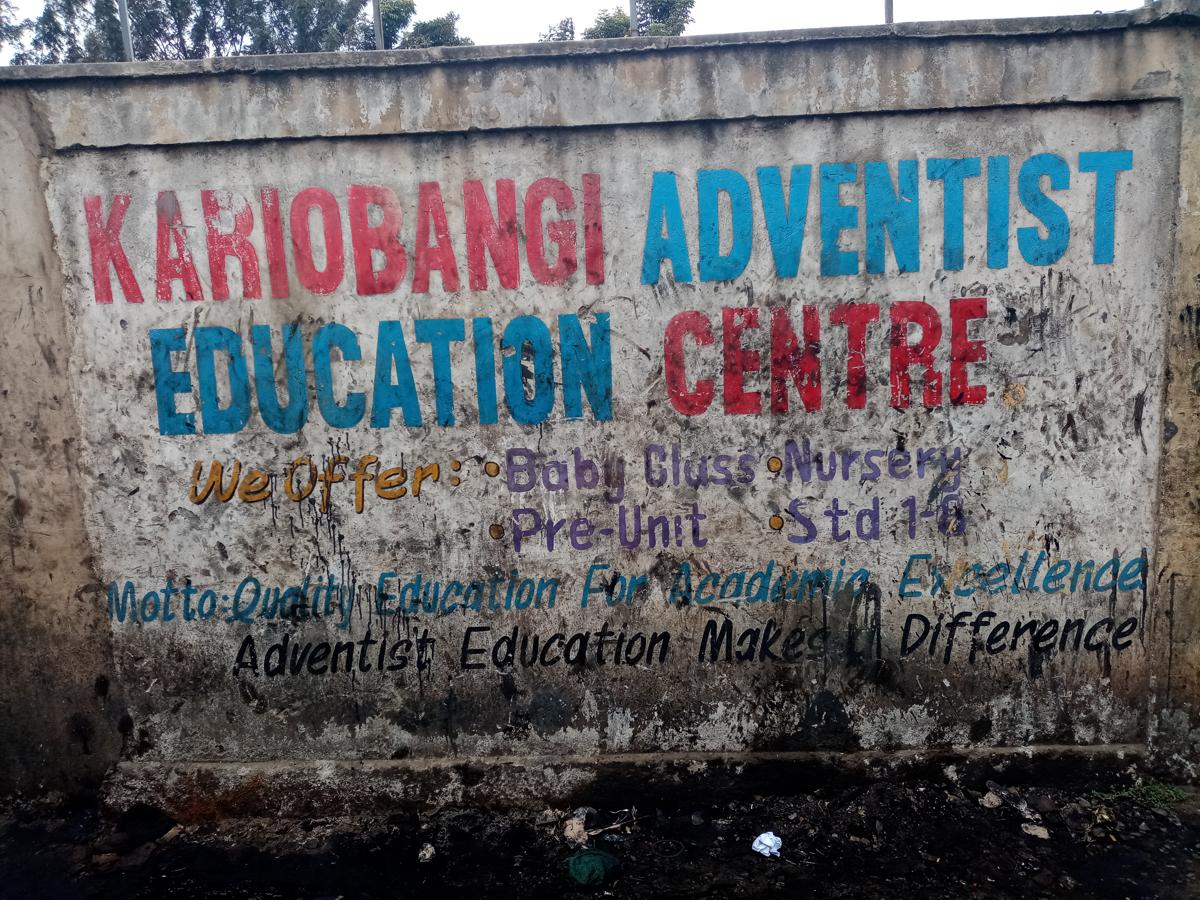 KARIOBANGI ADVENTIST
EDUCATION CENTRE
We Offer: •Baby Class •Nursery
•Pre-Unit •Std 1-8
Motto:Quality Education For Academic Excellence
Adventist Education Makes a Difference